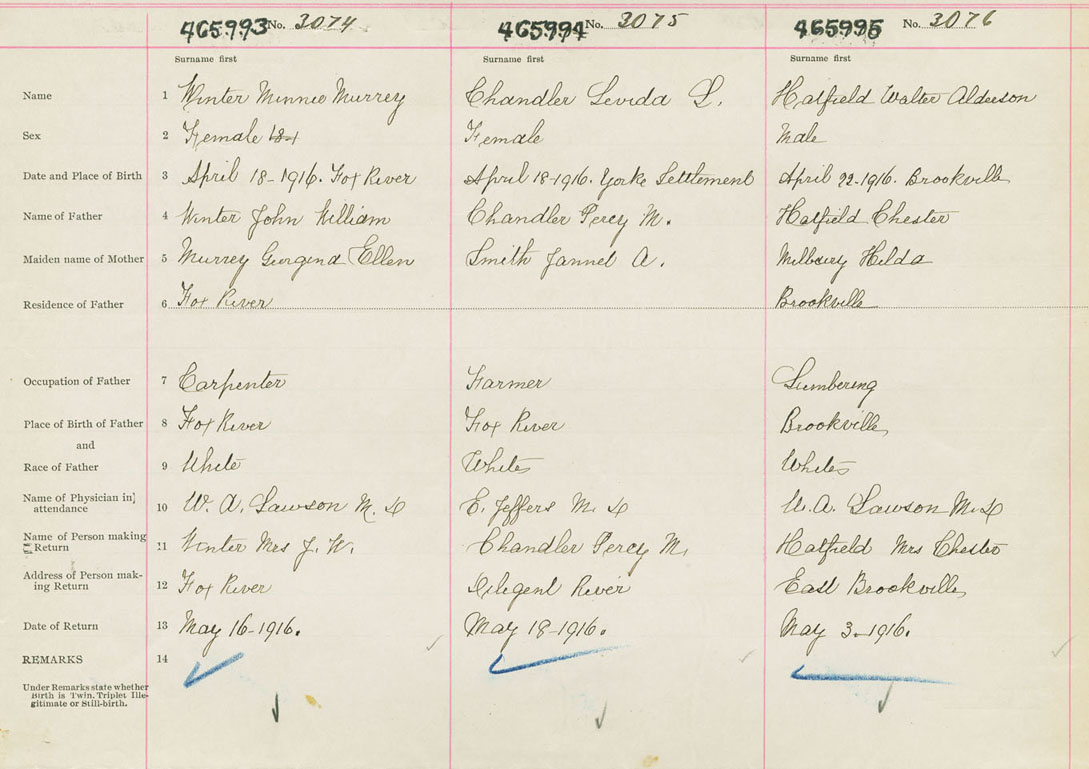 465993 No. 3074 465994 No. 3075 465995 No. 3076
Surname first Surname first Surname first
Name 1 Winter Minnie Murrey Chandler Levida L. Hatfield Walter Alderson
Sex 2 Female Female Male
Date and Place of Birth 3 April 18-1916. Fox River April 18-1916. Yorke Settlement April 22-1916. Brookville
Name of Father 4 Winter John William Chandler Percy M. Hatfield Chester
Maiden name of Mother 5 Murrey Ellen Smith Jannet A. Hilda
Residence of Father 6 Fox River Brookville
Occupation of Father 7 Carpenter Farmer Lumbering
Place of Birth of Father 8 Fox River Fox River Brookville
and
Race of Father 9 White White White
Name of Physician in
attendance 10 W. A. Lawson M. D E. Jeffers M. D W. A. Lawson M. D
Name of Person making
Return 11 Winter Mrs J. W. Chandler Percy M. Hatfield Mrs Chester
Address of Person mak-
ing Return 12 Fox River Diligent River East Brookville
Date of Return 13 May 16-1916. May 18-1916. May 3-1916.
REMARKS 14
Under Remarks state whether
Birth is Twin, Triplet Ille-
gitimate or Still-birth.